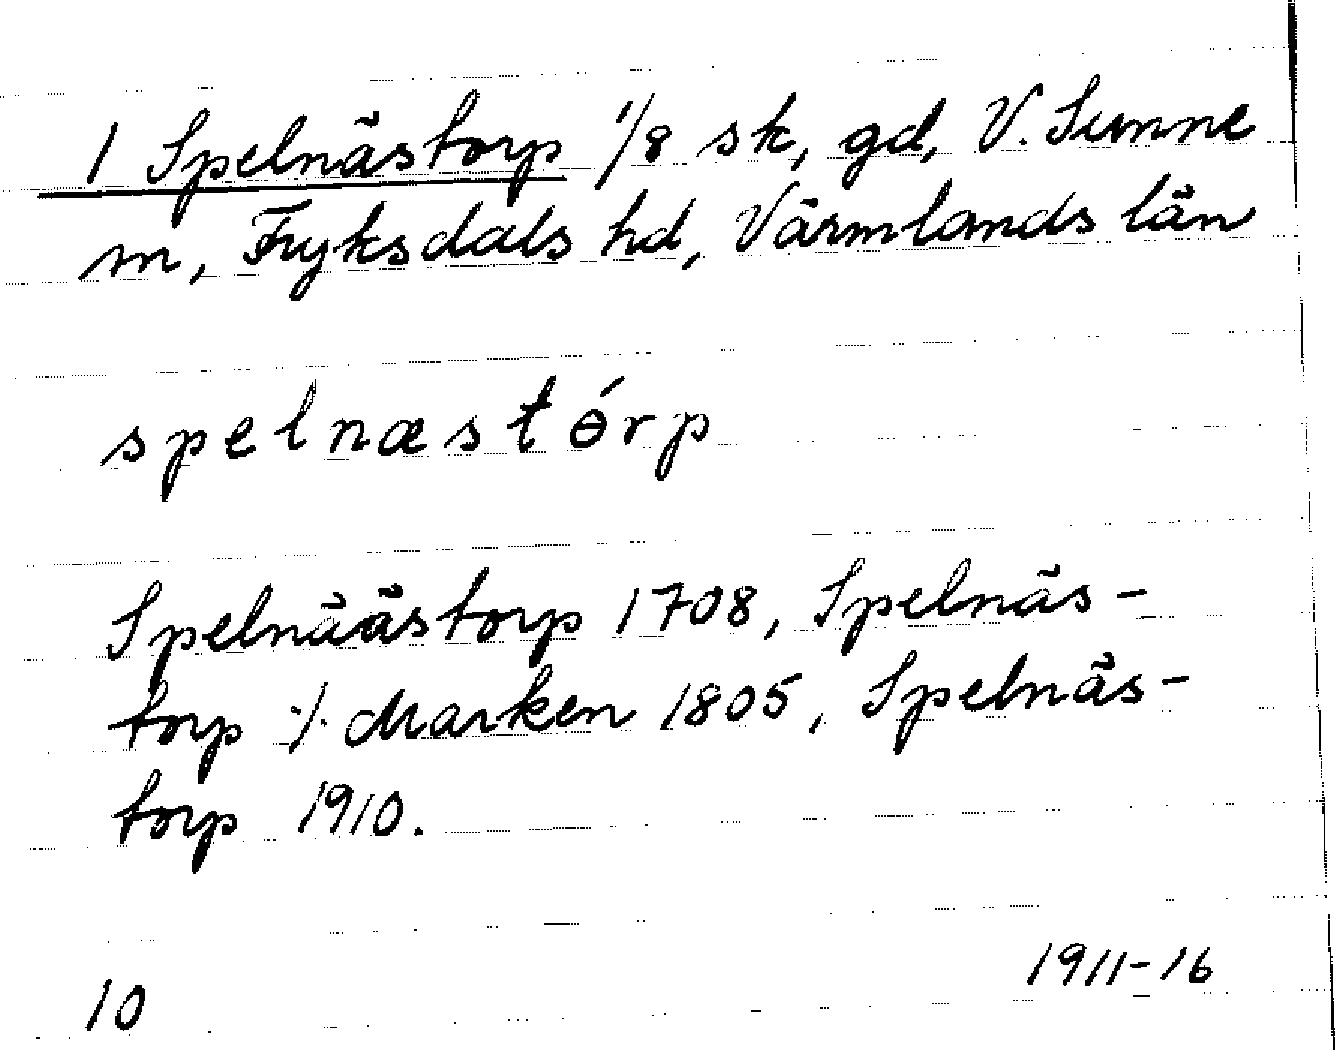 1 Spelnästorp 1/8 sk, gd, V. Sunne
m, Fryksdals hd, Värmlands län
spelnæstɵ́rp
Spelnäästorp 1708, Spelnäs-
torp ·/. Marken 1805, Spelnäs-
torp 1910.
1911-16
10